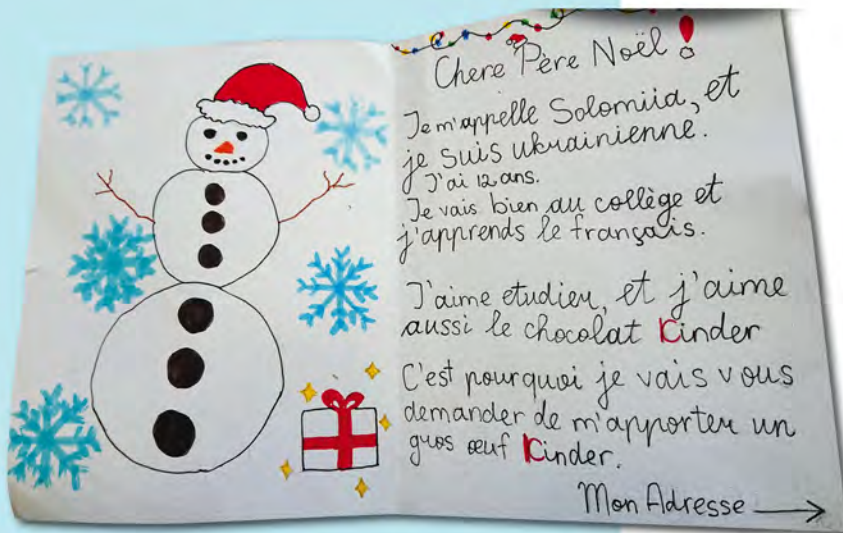 Chere Père Noël !
Je m'appelle Solomiia, et
je suis ukrainienne.
J'ai 12 ans.
Je vais bien au collège et
j'apprends le français.
J'aime etudier, et j'aime
aussi le chocolat Kinder
C'est pourquoi je vais vous
demander de m'apporter un
gros œuf Kinder.
Mon Adresse →